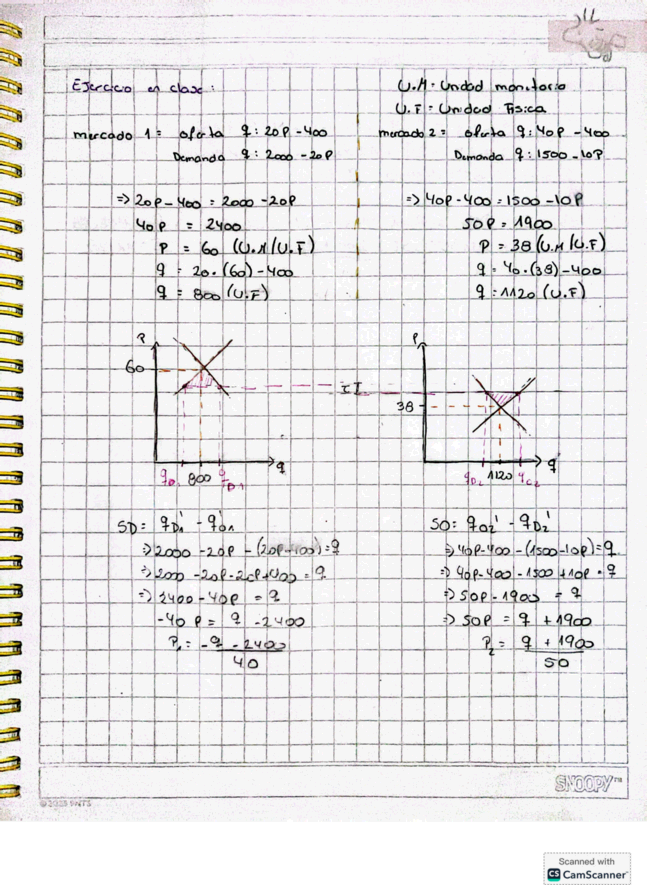 Ejercicio en clase:
U.M = Unidad monitario
U.F = Unidad Física
mercado 1 = oferta q: 20P - 400
Demanda q: 2000 - 20P
mercado 2 = oferta q: 40P - 400
Demanda q: 1500 - 10P
=> 20P - 400 = 2000 - 20P
40P = 2400
P = 60 (U.M/U.F)
q = 20·(60) - 400
q = 800 (U.F)
=> 40P - 400 = 1500 - 10P
50P = 1900
P = 38 (U.M/U.F)
q = 40·(38) - 400
q = 1120 (U.F)
P
60
800 q
q D1
P
38
II
q D2 1120 q
SD = q D1' - q O1'
=> 2000 - 20P - (20P - 400) = q
=> 2000 - 20P - 20P + 400 = q
=> 2400 - 40P = q
-40P = q - 2400
P1 = -q - 2400
40
SO: q O2' - q D2'
=> 40P - 400 - (1500 - 10P) = q
=> 40P - 400 - 1500 + 10P = q
=> 50P - 1900 = q
=> 50P = q + 1900
P2 = q + 1900
50
SNOOPY™
Scanned with
CS CamScanner